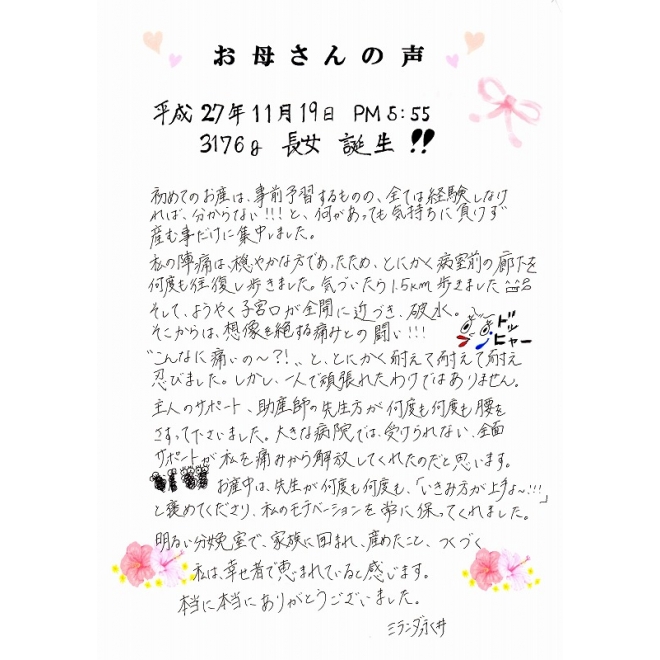 お母さんの声
平成27年11月19日 PM5:55
3176g 長女 誕生!!
初めてのお産は、事前予習するものの、全ては経験しなけ
れば、分からない!!!と、何があっても気持ちに負けず
産む事だけに集中しました。
私の陣痛は、穏やかな方であったため、とにかく病室前の廊下を
何度も往復し歩きました。気づいたら1.5km歩きました
そして、ようやく子宮口が全開に近づき、破水。
そこからは、想像を絶する痛みとの闘い!!!
ドッ
ヒャー
"こんなに痛いの〜?!〟と、とにかく耐えて耐えて耐え
忍びました。しかし、一人で頑張れたわけではありません。
主人のサポート、助産師の先生方が何度も何度も腰を
さすって下さいました。大きな病院では、受けられない、全面
サポートが私を痛みから解放してくれたのだと思います。
お産中は、先生が何度も何度も、「いきみ方が上手よ〜!!!」
と褒めてくださり、私のモチベーションを常に保ってくれました。
明るい分娩室で、家族に囲まれ、産めたこと、つくづく
私は、幸せ者で恵まれていると感じます。
本当に本当にありがとうございました。
ミランダ永井